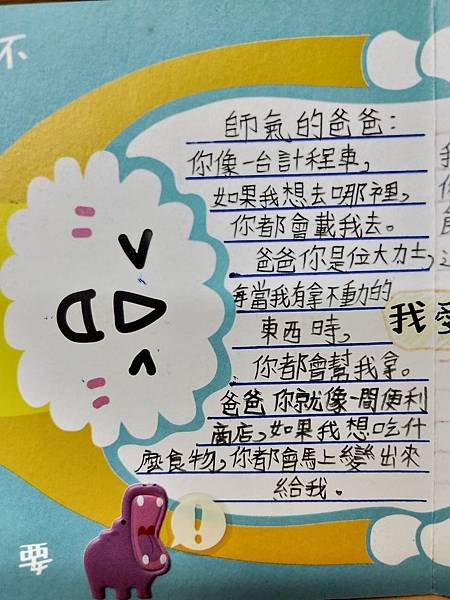 不
師氣的爸爸：
你像一台計程車，
如果我想去哪裡，
你都會載我去。
爸爸你是位大力士，
每當我有拿不動的
東西時，
你都會幫我拿。
爸爸你就像一間便利
商店，如果我想吃什
麼食物，你都會馬上變出來
給我。
我愛
!
要